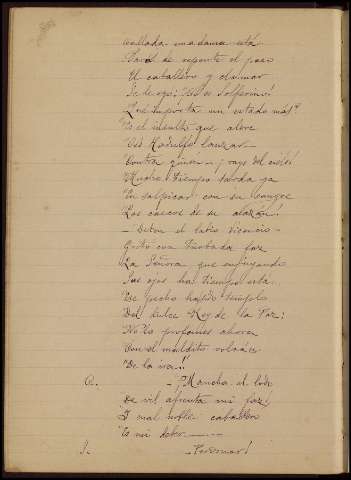 callada madama está
Paró de repente el paso
El caballero y clamar
Se le oyó; ¡No es Solferino!
Qué importa un estado más?
Es el insulto que aleve
Osó Rodolfo lanzar
Contra quien ¡rayo del cielo!
Mucho tiempo tarda ya
En salpicar con su sangre
Los cascos de su alazán!
— Deten el labio
Gritó con turbada faz
La Señora que enjugando
Sus ojos ha tiempo está.
De pecho templo
Del dulce Rey de la Paz:
No lo profanes ahora
Con el maldito volcán
De la ira!!
— ¡Mancha el lodo
De vil afrenta mi faz
Y mal noble caballero
Es mi deber
— Perdonar!